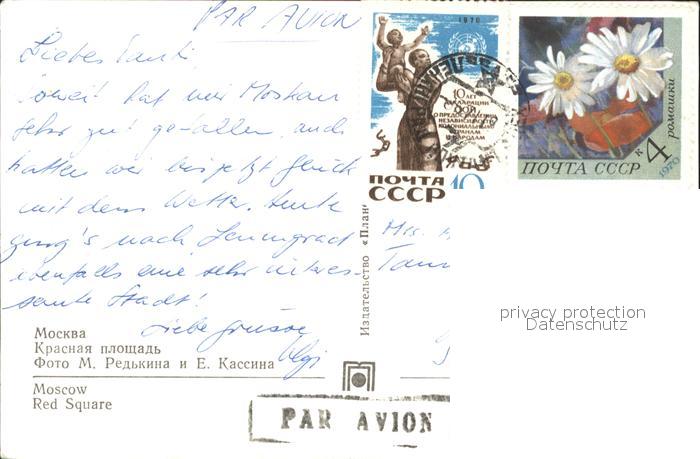 PAR AVION
Liebes
soweit hat mir Moskau
sehr gut gefallen, auch
hatten wir bis jetzt Glück
mit dem Wetter. Heute
ging's nach Leningrad
ebenfalls eine sehr interes-
sante Stadt!
Liebe Grüsse
Москва
Красная площадь
Фото М. Редькина и Е. Кассина
Moscow
Red Square
Издательство «План
1970
10 ЛЕТ
ДЕКЛАРАЦИИ
ООН
О ПРЕДОСТАВЛЕНИИ
НЕЗАВИСИМОСТИ
КОЛОНИАЛЬНЫМ
СТРАНАМ
И НАРОДАМ
ПОЧТА
СССР 10
ромашки
ПОЧТА СССР К 4
1970
Mrs.
privacy protection
Datenschutz
PAR AVION